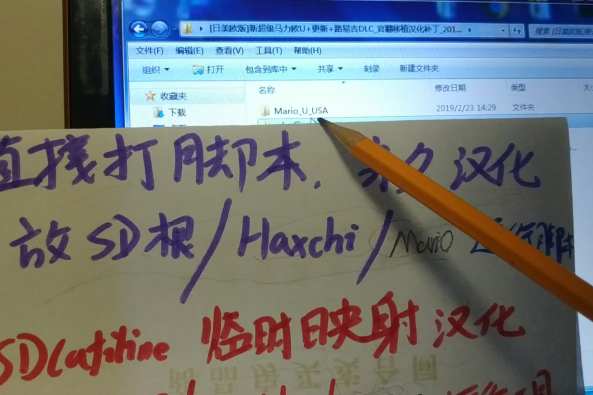 [日美欧版]新超级马力欧U+更新+路易吉DLC_官翻移植汉化补丁_201...
文件(F) 编辑(E) 查看(V) 工具(T) 帮助(H)
组织 打开 包含到库中 共享 刻录 新建文件夹
收藏夹 名称 修改日期 类型
下载 Mario_U_USA 2019/2/23 14:29 文件夹
直接打脚本，永久汉化
放SD根/Haxchi/Mario
临时映射汉化